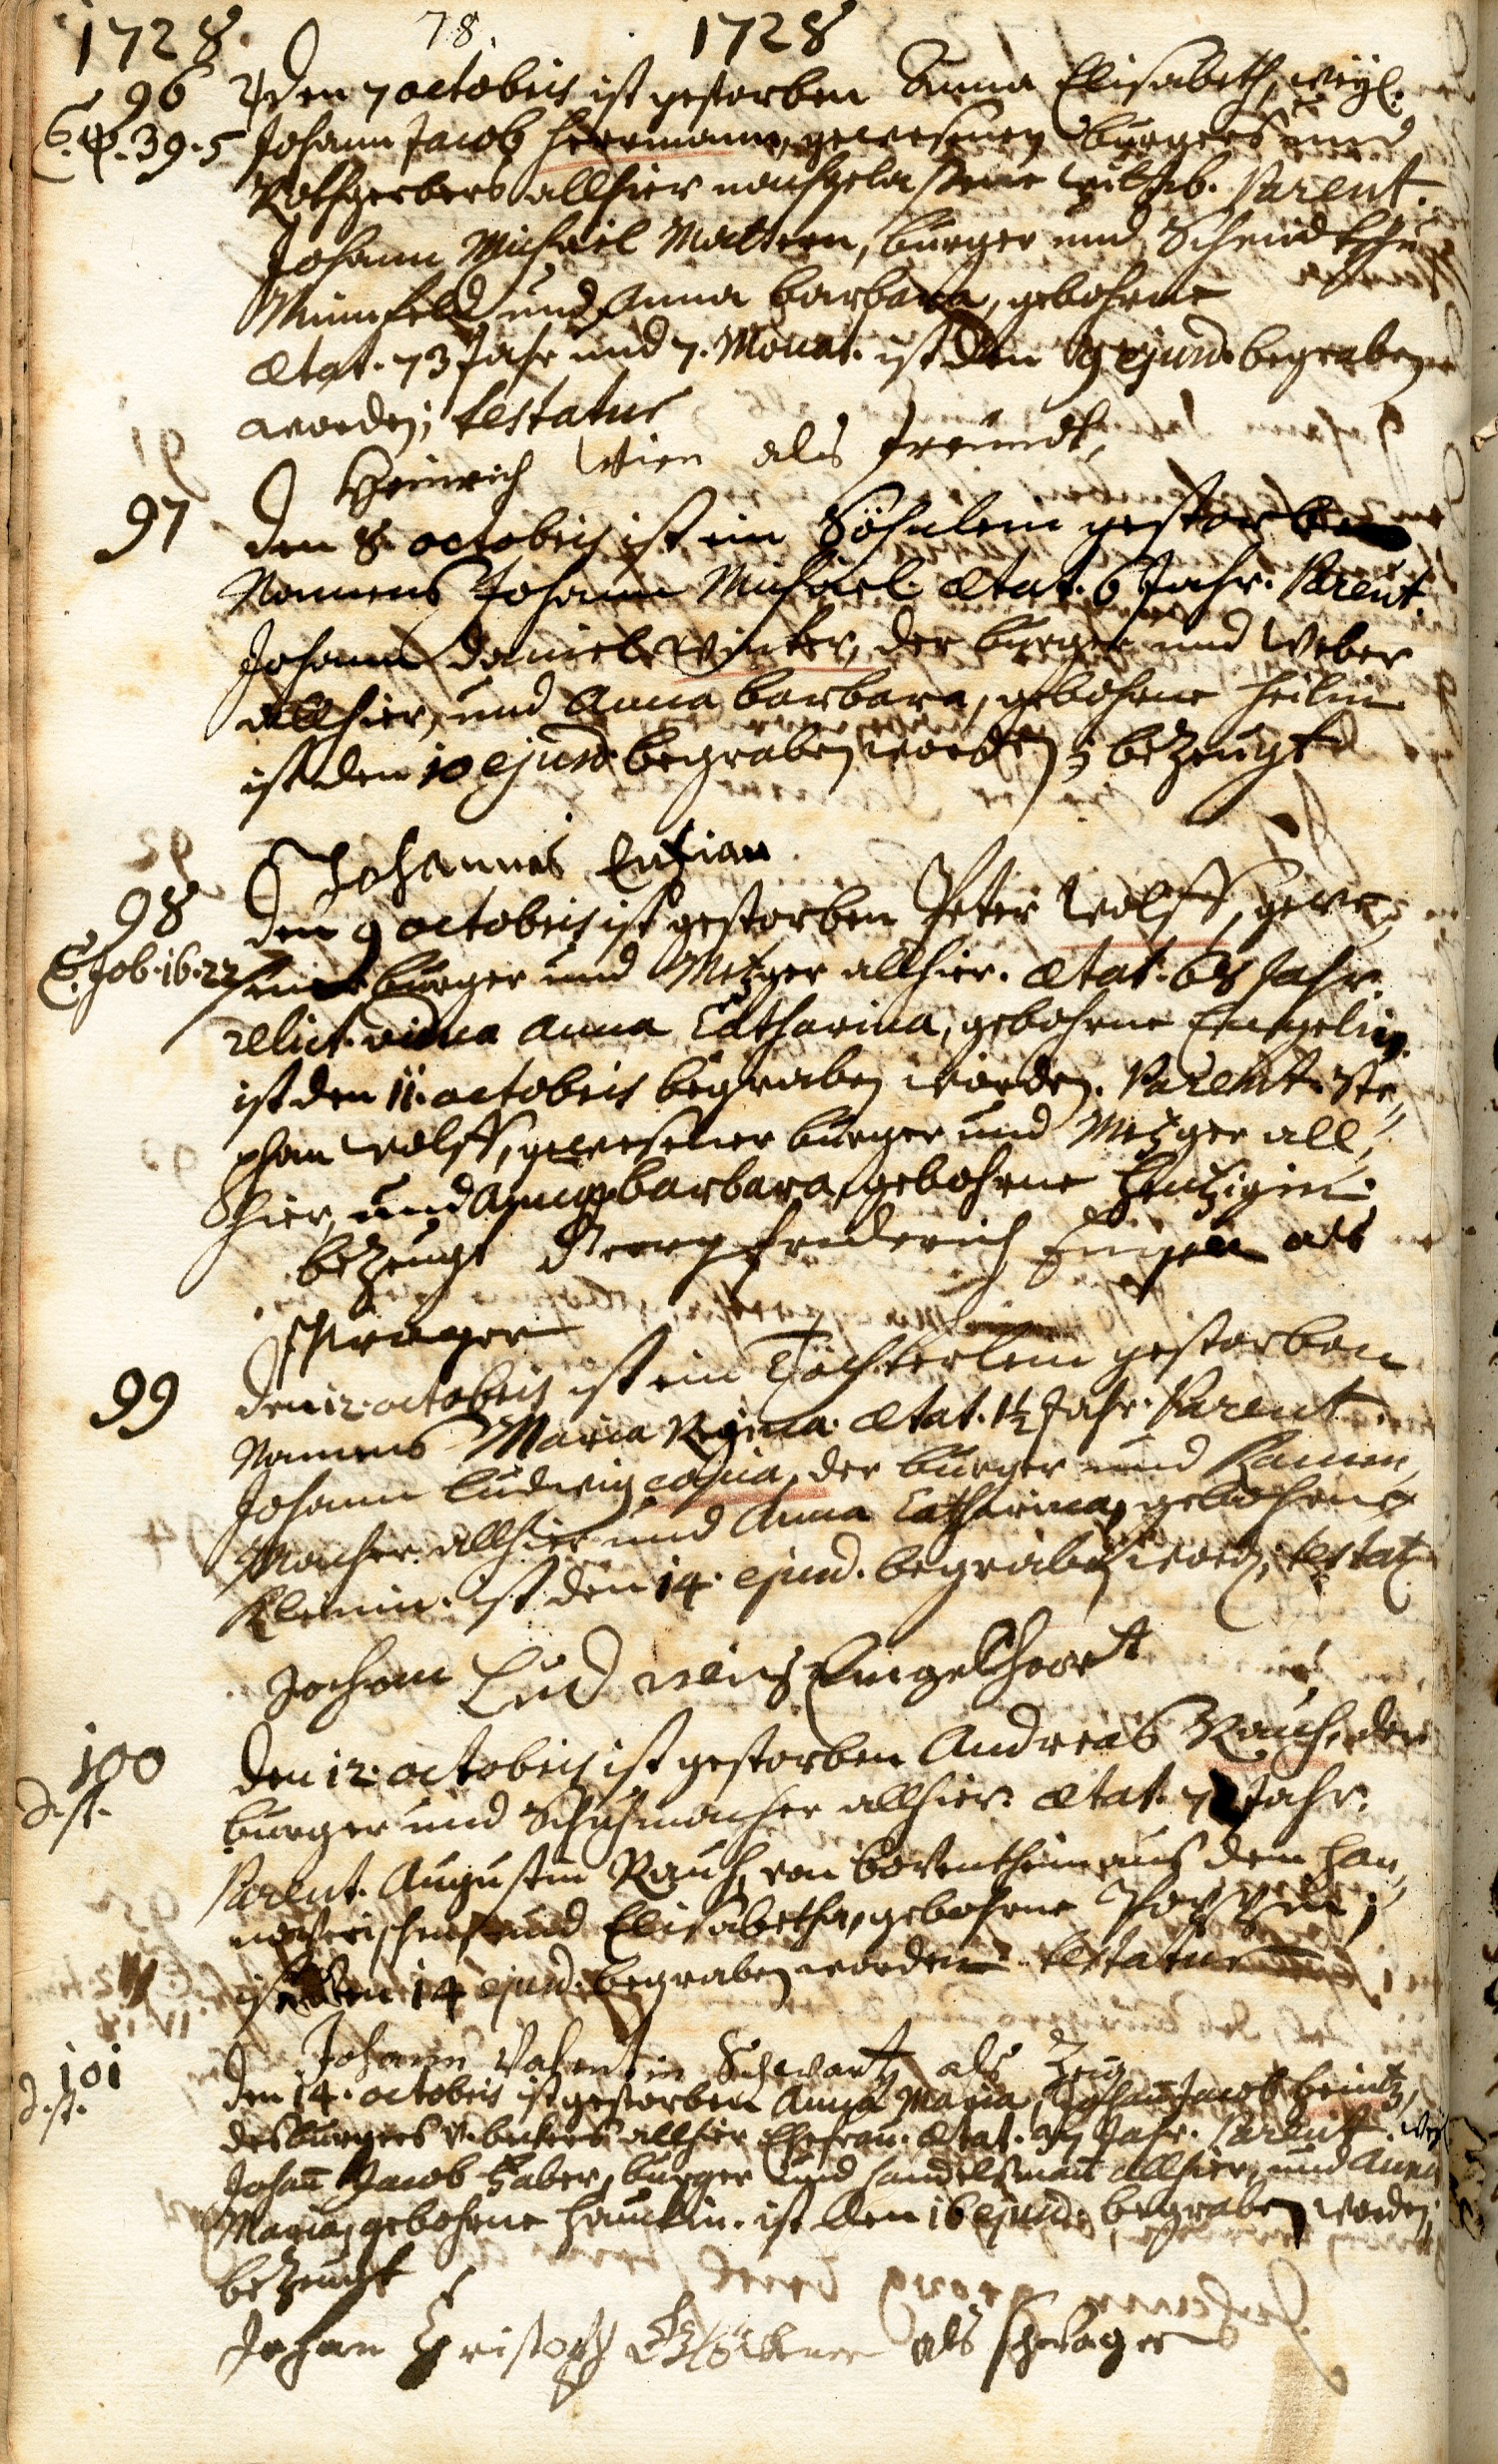 1728. 78. 1728
96 Den 7 octobris ist gestorben Anna Elisabeth, weyl.
C. Ps. 39. 5 Johann Jacob Herrmann, gewesenen burgers und
Rothgerbers allhier nachgelaßene wittib. Parent.
Johann Michael Mattern, burger und Schmidt zu
Minnfeld und Anna barbara, gebohrne
Ætat. 73 Jahr und 7. Monat. ist den 9 ejusd. begraben
worden; testatur
Heinrich Wien als freundt,
97 den 8. octobris ist ein Söhnlein gestorben
Namens Johann Michael. Ætat. 6 Jahr. Parent.
Johann Daniel Winter, der burger und Weber
allhier, und Anna barbara, gebohrne Heilin
ist den 10 ejusd. begraben worden; bezeugt
Johannes
98 den 9 octobris ist gestorben Peter Wolff, gewe-
C. Job. 16. 22 sener burger und Metzger allhier. Ætat. 68 Jahr.
relict. vidua Anna Catharina, gebohrne Engelin.
ist den 11. octobris begraben worden. Parent. Ste-
phan Wolff, gewesener burger und Metzger all-
hier, und Anna barbara, gebohrne
bezeugt Georg Friderich als
Schwager
99 den 12. octobris ist ein Töchterlein gestorben
Namens Maria Regina. Ætat. 1½ Jahr. Parent.
Johann Ludwig der burger und Kamm-
Macher allhier und Anna Catharina, gebohrne
Klemin. ist den 14. ejusd. begraben word; testat.
Johann Ludwig Engelhardt
100 den 12. octobris ist gestorben Andreas Rauch, der
d. st. burger und Schuhmacher allhier. Ætat. 7 Jahr.
Parent. Augustin Rauch, von aus dem Han-
noverischen und Elisabetha, gebohrne
ist den 14 ejusd. begraben worden. testatur
Johann Valentin Schwartz als Zeug
101 den 14. octobris ist gestorben Anna Maria, Johann Jacob Heintz,
d. st. des burgers v. beckers allhier Ehefrau. Ætat. Jahr. Parent. weyl.
Johan Jacob Haber, burger und Handelsman allhier, und Anna
Maria, gebohrne Hauckin. ist den 16 ejusd. begraben worden;
bezeugt
Johan Christoph als Schwager